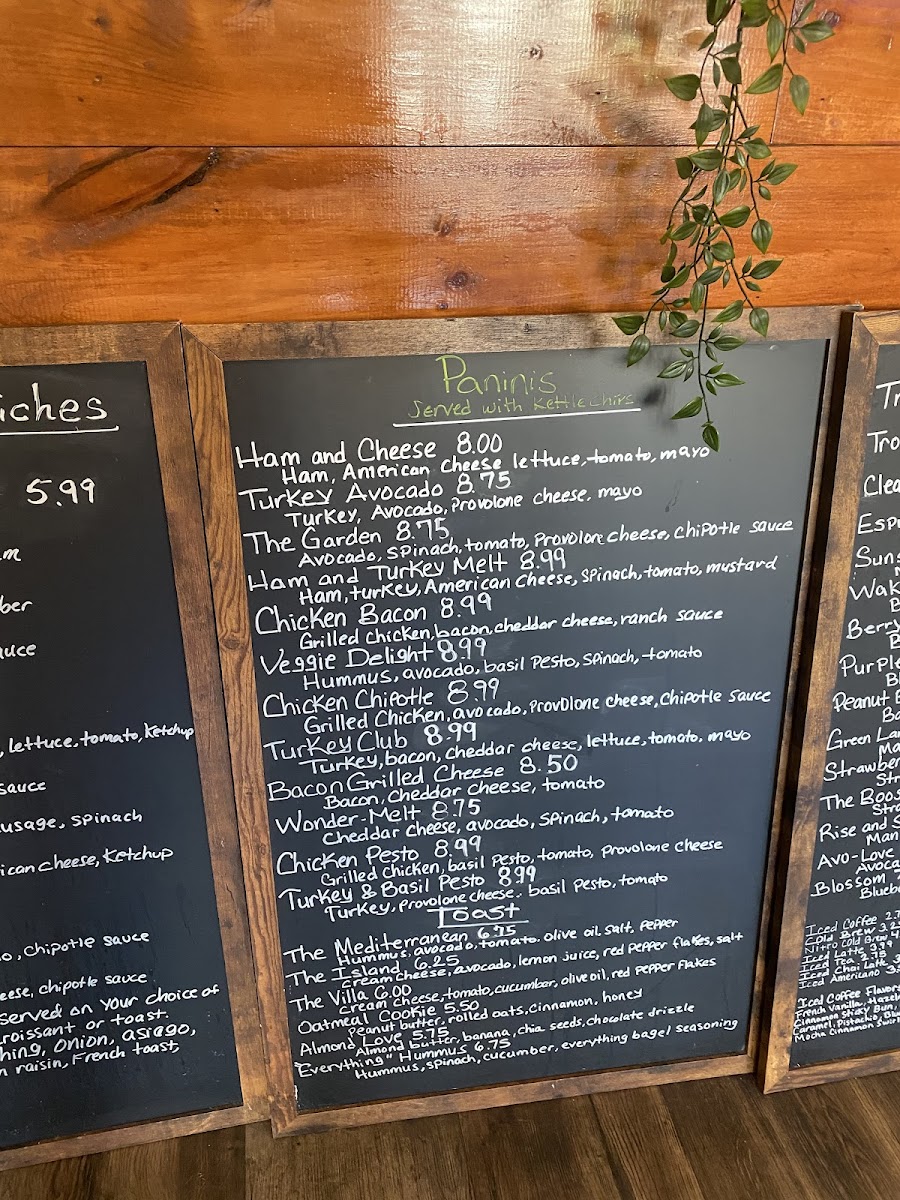 iches
5.99
m
ber
auce
, lettuce, tomato, Ketchup
sauce
usage, spinach
ican cheese, Ketchup
o, chipotle sauce
eese, chipotle sauce
served on your choice of
roissant or toast.
hing, onion, asiago,
n raisin, French toast,
Paninis
Served with Kettle Chips
Ham and Cheese 8.00
Ham, American cheese lettuce, tomato, mayo
Turkey Avocado 8.75
Turkey, Avocado, Provolone cheese, mayo
The Garden 8.75
Avocado, Spinach, tomato, Provolone cheese, Chipotle sauce
Ham and Turkey Melt 8.99
Ham, turkey, American cheese, spinach, tomato, mustard
Chicken Bacon 8.99
Grilled chicken, bacon, cheddar cheese, ranch sauce
Veggie Delight 8.99
Hummus, avocado, basil pesto, spinach, tomato
Chicken Chipotle 8.99
Grilled Chicken, avocado, Provolone cheese, Chipotle sauce
Turkey Club 8.99
Turkey, bacon, cheddar cheese, lettuce, tomato, mayo
Bacon Grilled Cheese 8.50
Bacon, Cheddar cheese, tomato
Wonder-Melt 8.75
Cheddar cheese, avocado, spinach, tomato
Chicken Pesto 8.99
Grilled chicken, basil Pesto, tomato, Provolone cheese
Turkey & Basil Pesto 8.99
Turkey, Provolone cheese, basil Pesto, tomato
Toast
The Mediterranean 6.75
Hummus, avocado, tomato, olive oil, salt, pepper
The Island 6.25
cream cheese, avocado, lemon juice, red pepper flakes, salt
The Villa 6.00
cream cheese, tomato, cucumber, olive oil, red pepper flakes
Oatmeal Cookie 5.50
Peanut butter, rolled oats, cinnamon, honey
Almond Love 5.75
Almond butter, banana, chia seeds, chocolate drizzle
"Everything" Hummus 6.75
Hummus, spinach, cucumber, everything bagel seasoning
Tr
Tro
Clea
Espr
Suns
Wak
B
Berry
B
Purple
Bl
Peanut B
Ba
Green Lan
Ma
Strawber
Str
The Boos
Stra
Rise and S
Man
Avo-Love
Avoca
Blossom
Blueb
Iced Coffee 2.7
Cold Brew 3.2
Nitro Cold Brew 4
Iced Latte 3.99
Iced Tea 2.75
Iced Chai Latte 3
Iced Americano 3
Iced Coffee Flavors
French Vanilla, Hazeln
Cinnamon Sticky Bun,
Caramel, Pistachio, Blu
Mocha Cinnamon Swirl